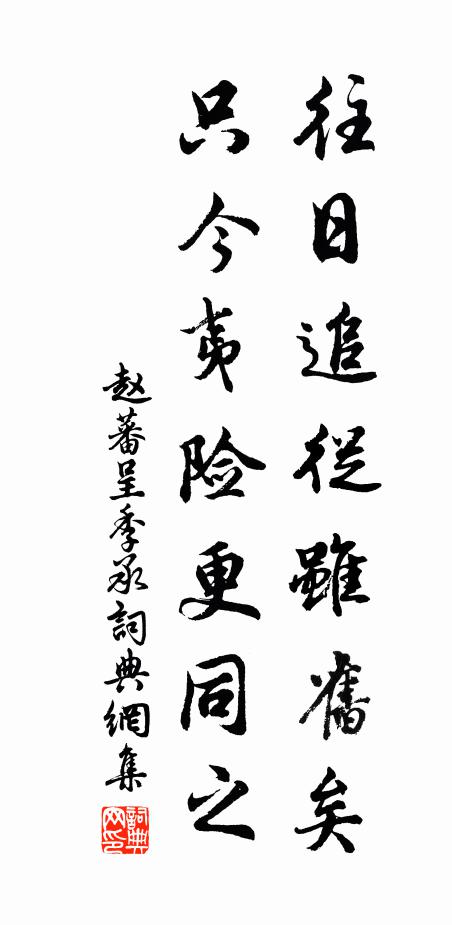 往日追從雖舊矣
只今夷险更同之
赵蕃呈季承詞典網集
詞典网印